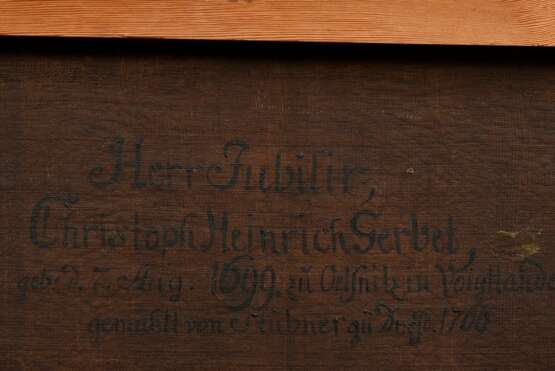 Herr Jubilir,
Christoph Heinrich Gerbet,
geb. d. 7. Aug. 1699. zu Oelsnitz in Voigtlande
gemahlt von Hübner zu Dressd. 1768